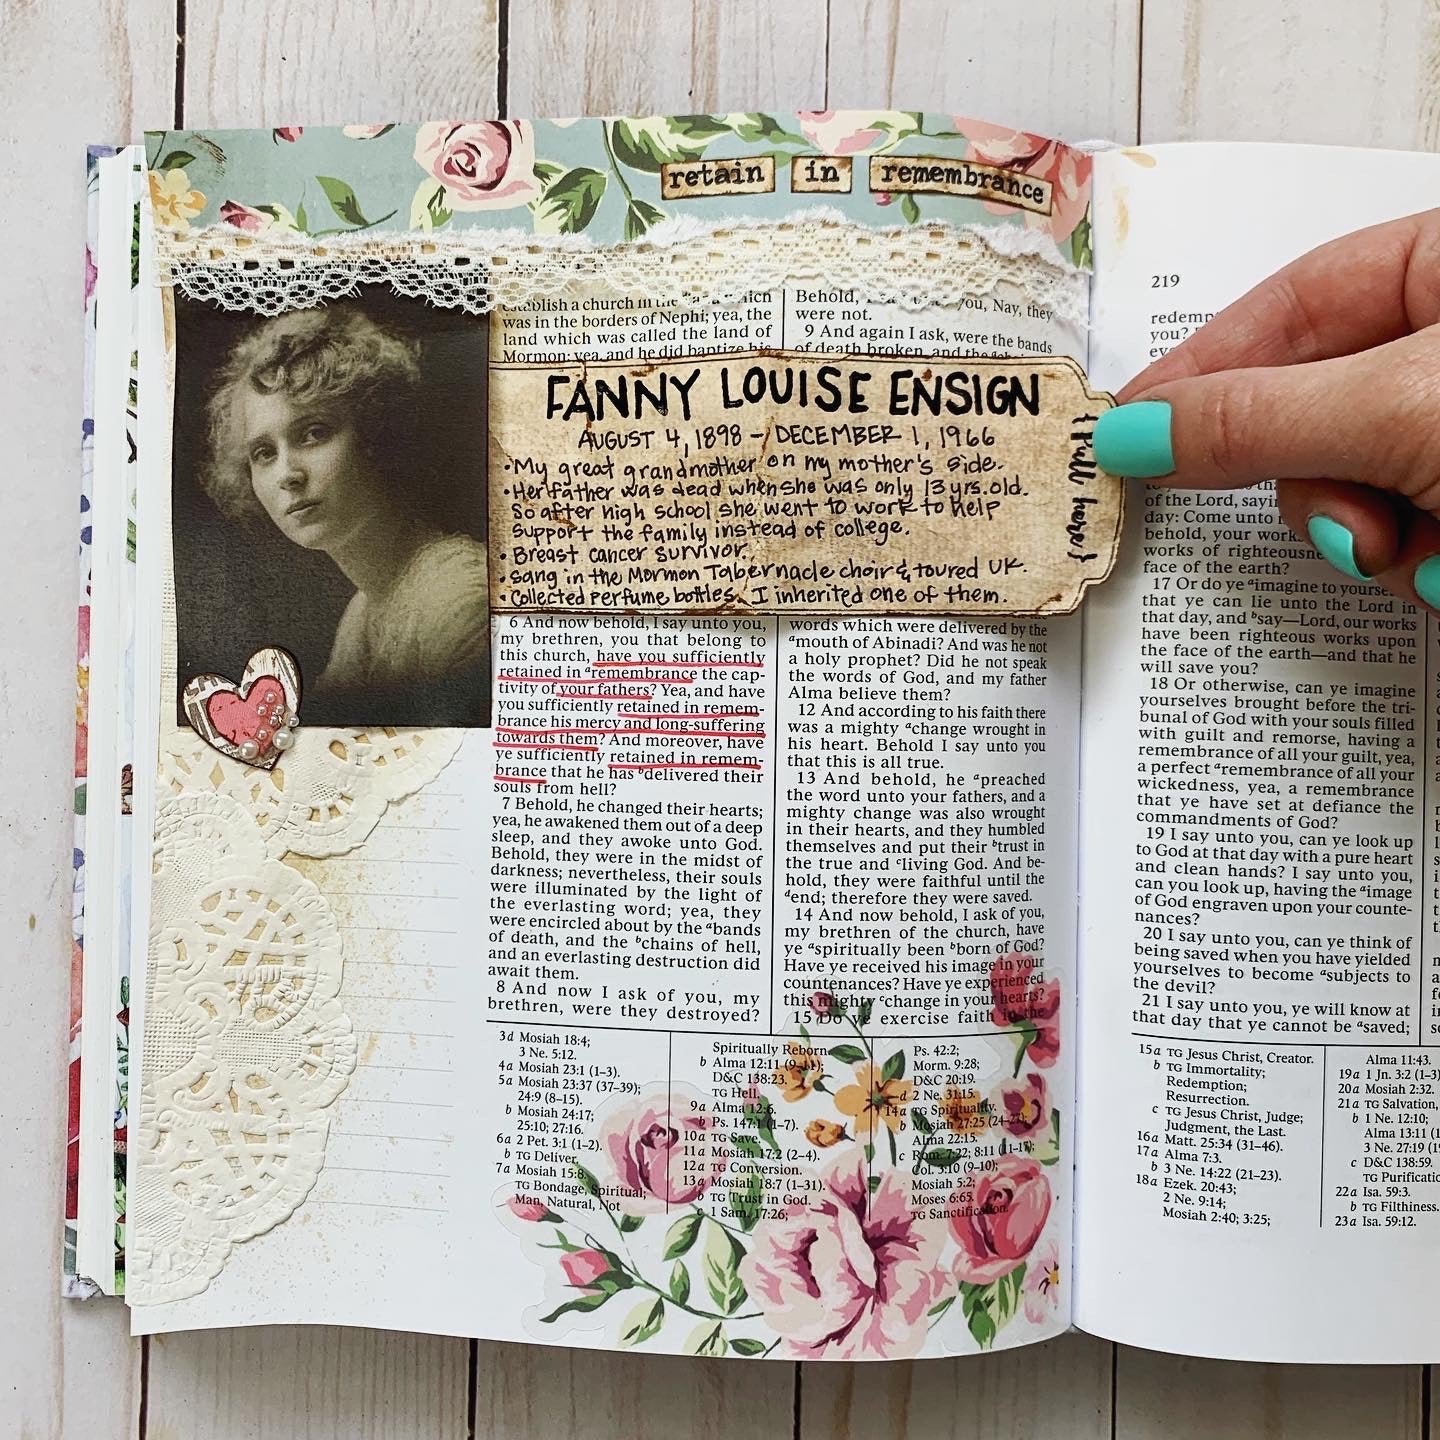 retain in remembrance
establish a church in the which
was in the borders of Nephi; yea, the
land which was called the land of
Mormon; yea, and he did baptize his
Behold, you, Nay, they
were not.
9 And again I ask, were the bands
of death broken, and the
FANNY LOUISE ENSIGN
AUGUST 4, 1898 - DECEMBER 1, 1966
• My great grandmother on my mother's side.
• Her father was dead when she was only 13 yrs. old.
So after high school she went to work to help
support the family instead of college.
• Breast cancer survivor.
• Sang in the Mormon Tabernacle choir & toured UK.
• Collected perfume bottles. I inherited one of them.
{Pull here}
6 And now behold, I say unto you,
my brethren, you that belong to
this church, have you sufficiently
retained in aremembrance the cap-
tivity of your fathers? Yea, and have
you sufficiently retained in remem-
brance his mercy and long-suffering
towards them? And moreover, have
ye sufficiently retained in remem-
brance that he has bdelivered their
souls from hell?
7 Behold, he changed their hearts;
yea, he awakened them out of a deep
sleep, and they awoke unto God.
Behold, they were in the midst of
darkness; nevertheless, their souls
were illuminated by the light of
the everlasting word; yea, they
were encircled about by the abands
of death, and the bchains of hell,
and an everlasting destruction did
await them.
8 And now I ask of you, my
brethren, were they destroyed?
words which were delivered by the
amouth of Abinadi? And was he not
a holy prophet? Did he not speak
the words of God, and my father
Alma believe them?
12 And according to his faith there
was a mighty achange wrought in
his heart. Behold I say unto you
that this is all true.
13 And behold, he apreached
the word unto your fathers, and a
mighty change was also wrought
in their hearts, and they humbled
themselves and put their btrust in
the true and cliving God. And be-
hold, they were faithful until the
dend; therefore they were saved.
14 And now behold, I ask of you,
my brethren of the church, have
ye aspiritually been bborn of God?
Have ye received his image in your
countenances? Have ye experienced
this mighty cchange in your hearts?
15 Do ye exercise faith in the
3d Mosiah 18:4;
3 Ne. 5:12.
4a Mosiah 23:1 (1–3).
5a Mosiah 23:37 (37–39);
24:9 (8–15).
b Mosiah 24:17;
25:10; 27:16.
6a 2 Pet. 3:1 (1–2).
b TG Deliver.
7a Mosiah 15:8.
TG Bondage, Spiritual;
Man, Natural, Not
Spiritually Reborn.
b Alma 12:11 (9–11);
D&C 138:23.
TG Hell.
9a Alma 12:6.
b Ps. 147:1 (1–7).
10a TG Save.
11a Mosiah 17:2 (2–4).
12a TG Conversion.
13a Mosiah 18:7 (1–31).
b TG Trust in God.
c 1 Sam. 17:26;
Ps. 42:2;
Morm. 9:28;
D&C 20:19.
d 2 Ne. 31:15.
14a TG Spirituality.
b Mosiah 27:25 (24–27);
Alma 22:15.
c Rom. 7:22; 8:11 (11–17);
Col. 3:10 (9–10);
Mosiah 5:2;
Moses 6:65.
TG Sanctification.
219
you?
of the Lord,
day: Come unto
behold, your
works of
face of the earth?
17 Or do ye aimagine to
that ye can lie unto the Lord in
that day, and bsay—Lord, our works
have been righteous works upon
the face of the earth—and that he
will save you?
18 Or otherwise, can ye imagine
yourselves brought before the tri-
bunal of God with your souls filled
with guilt and remorse, having a
remembrance of all your guilt, yea,
a perfect aremembrance of all your
wickedness, yea, a remembrance
that ye have set at defiance the
commandments of God?
19 I say unto you, can ye look up
to God at that day with a pure heart
and clean hands? I say unto you,
can you look up, having the aimage
of God engraven upon your counte-
nances?
20 I say unto you, can ye think of
being saved when you have yielded
yourselves to become asubjects to
the devil?
21 I say unto you, ye will know at
that day that ye cannot be asaved;
15a TG Jesus Christ, Creator.
b TG Immortality;
Redemption;
Resurrection.
c TG Jesus Christ, Judge;
Judgment, the Last.
16a Matt. 25:34 (31–46).
17a Alma 7:3.
b 3 Ne. 14:22 (21–23).
18a Ezek. 20:43;
2 Ne. 9:14;
Mosiah 2:40; 3:25;
Alma 11:43.
19a 1 Jn. 3:2 (1–3)
20a Mosiah 2:32.
21a TG Salvation,
b 1 Ne. 12:10;
Alma 13:11
3 Ne. 27:19
c D&C 138:59.
TG
22a Isa. 59:3.
b TG Filthiness.
23a Isa. 59:12.